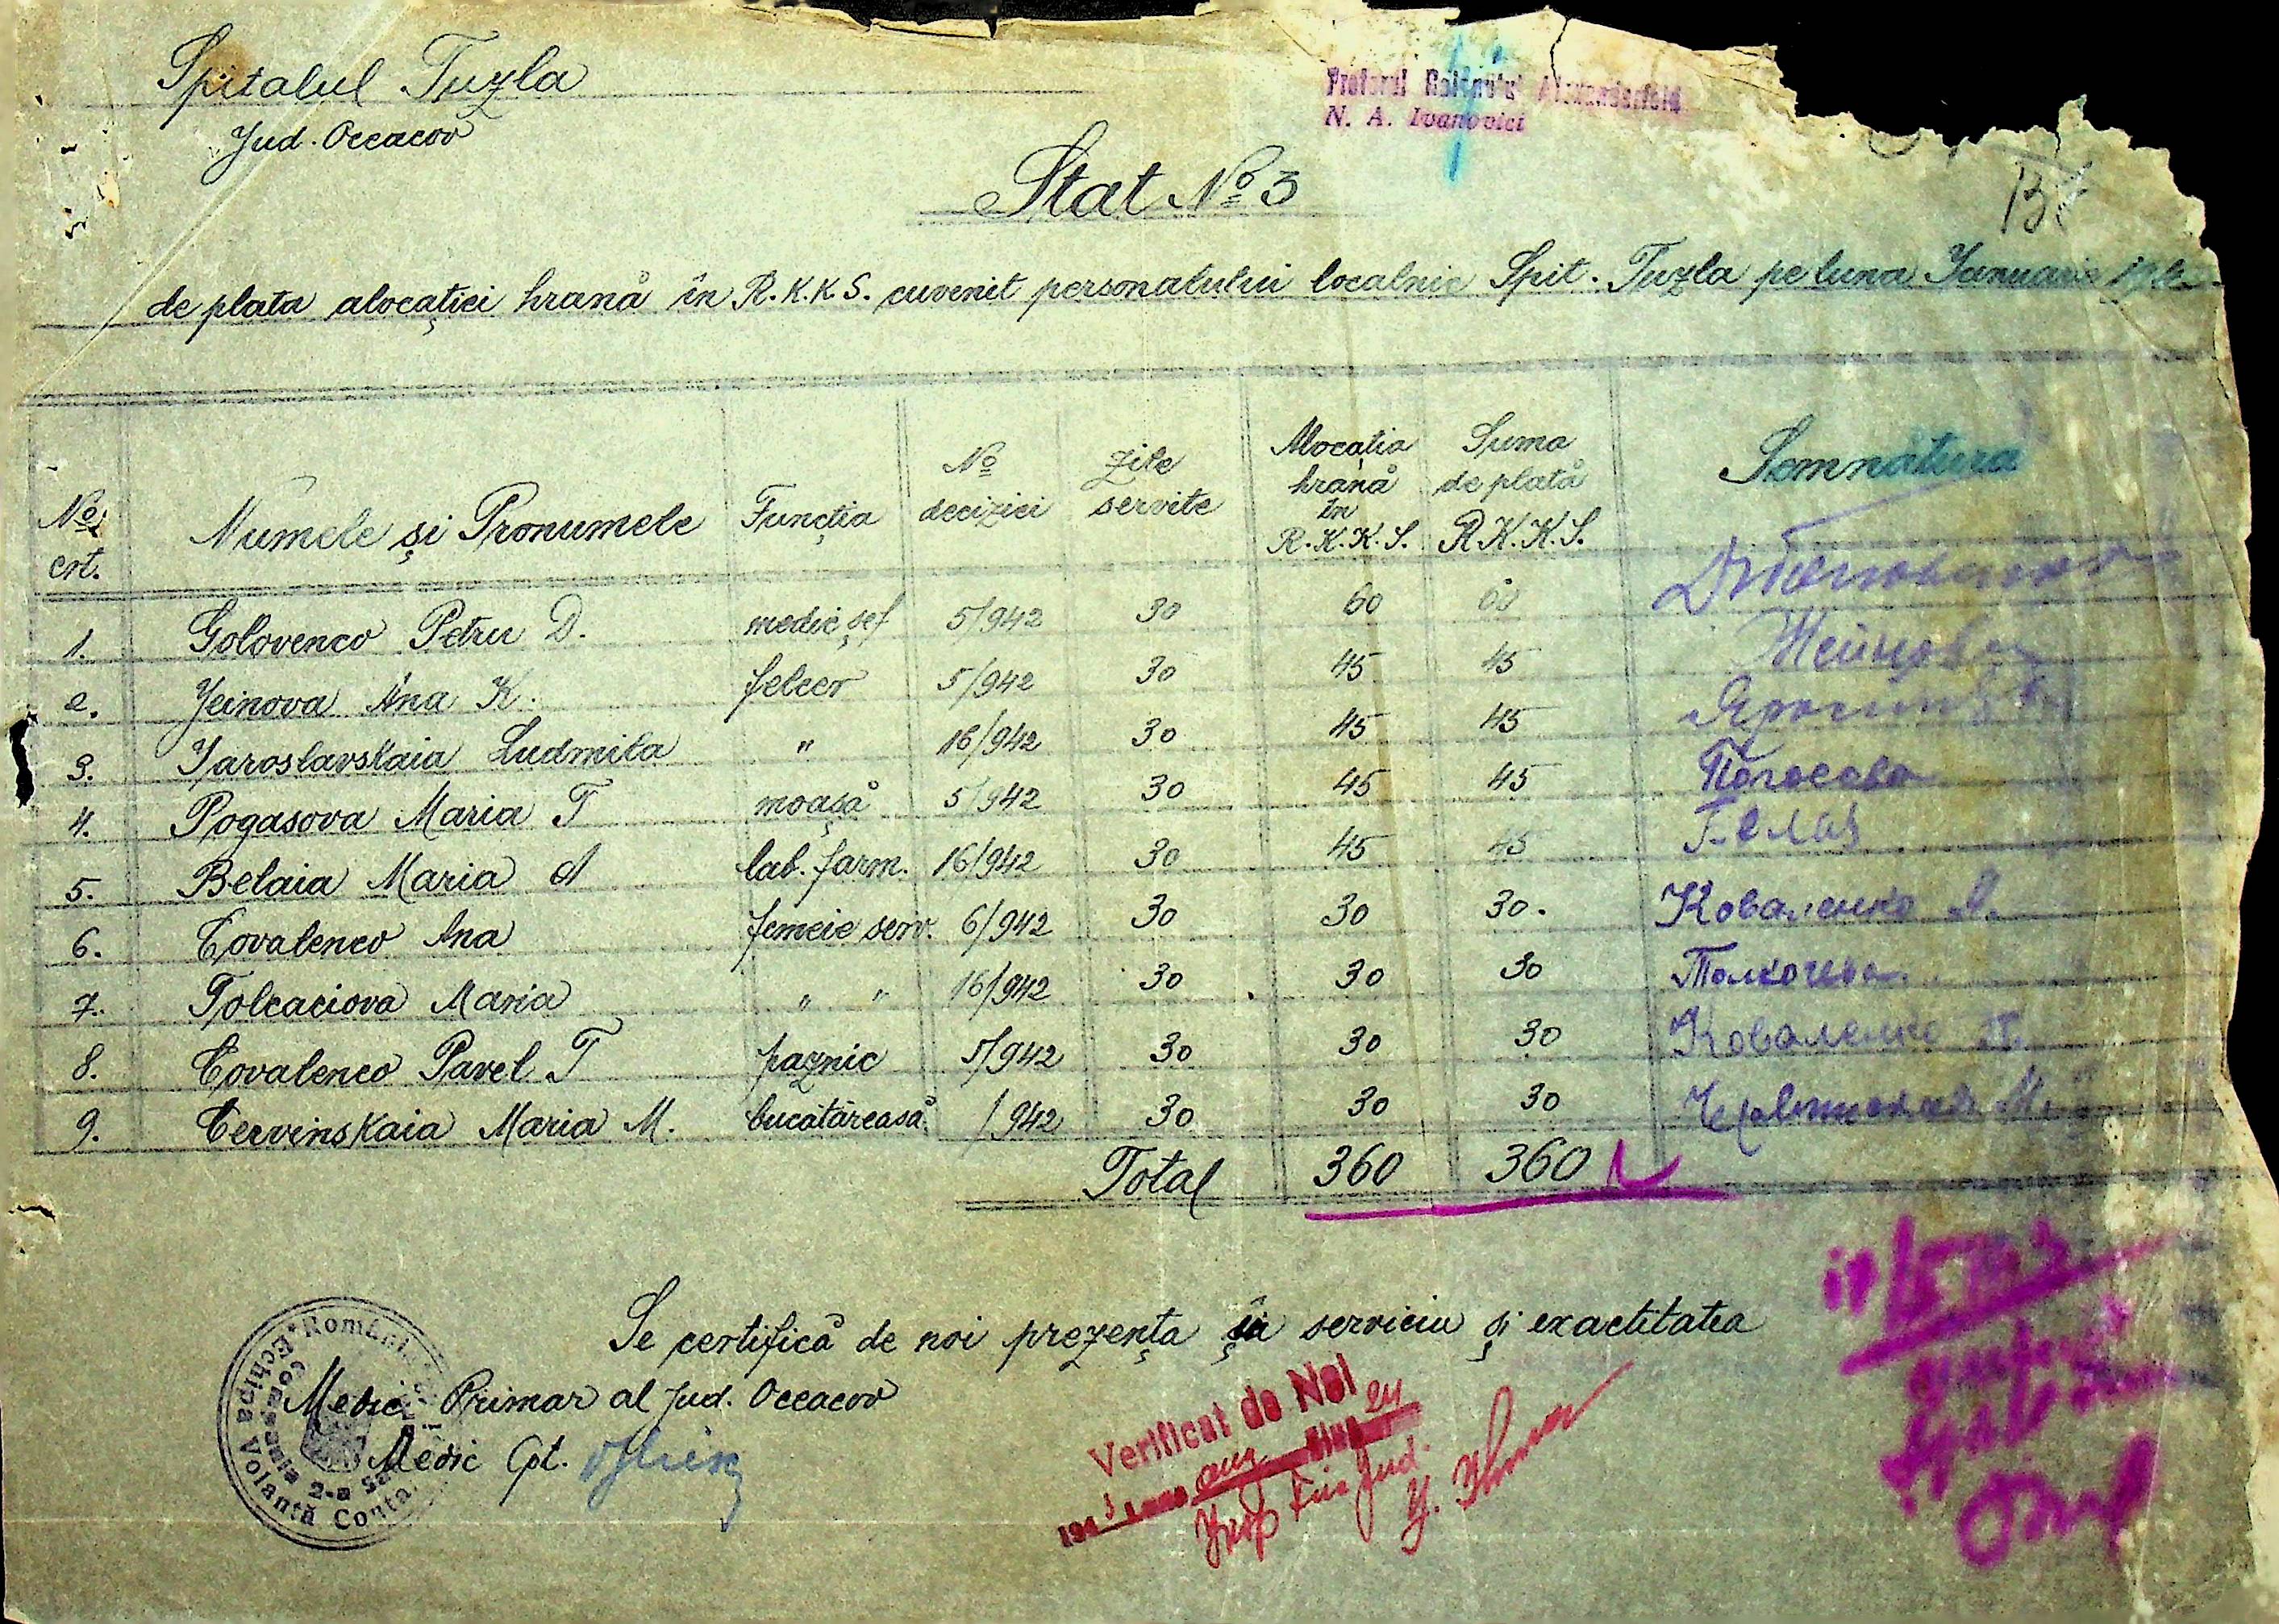 Spitalul Tuzla
Jud. Oceacov
Pretorul Raionului Alexanderfeld
N. A. Ivanovici
Stat № 3
de plata alocației hrană în R.K.K.S. cuvenit personalului localnic Spit. Tuzla pe luna Ianuarie
№ crt. Numele și Pronumele Funcția № deciziei Zile servite Alocația hrană în R.K.K.S. Suma de plată R.K.K.S. Semnătura
1. Golovenco Petru D. medic șef 5/942 30 60 60
2. Jeinova Ana K. felcer 5/942 30 45 45 Жейнова
3. Iaroslavskaia Ludmila " 16/942 30 45 45
4. Pogasova Maria T moașă 5/942 30 45 45 Погосова
5. Belaia Maria A lab. farm. 16/942 30 45 45 Белая
6. Covalenco Ana femeie serv. 6/942 30 30 30. Коваленко А.
7. Tolcaciova Maria " " 16/942 30 30 30 Толкочева
8. Covalenco Pavel T paznic 5/942 30 30 30 Коваленко П.
9. Cervinskaia Maria M. bucătăreasă /942 30 30 30 Червинская М.
Total 360 360
Se certifică de noi prezența în serviciu și exactitatea
Medic Primar al Jud. Oceacov
Medic Cpt.
România
Echipa Volantă
Compania 2-a
Verificat de Noi
1943 Luna aug Ziua 24